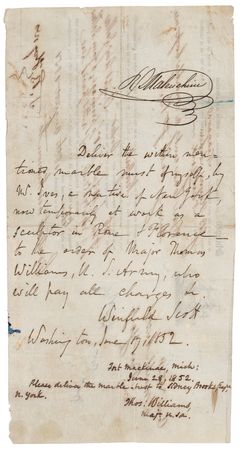 Deliver the within men-
tioned marble bust of myself, by
Mr. Ives, a native of New York,
now temporarily at work as a
sculptor in Rome & Florence
to the order of Major Thomas
Williams, U. S. Army, who
will pay all charges on
Winfield Scott
Washington, June 19, 1852.
Fort Mackinac, Mich:
June 28, 1852.
Please deliver the marble bust to Sidney Brooks Esq.
N. York.
Thos: Williams,
Maj. U.S.A.